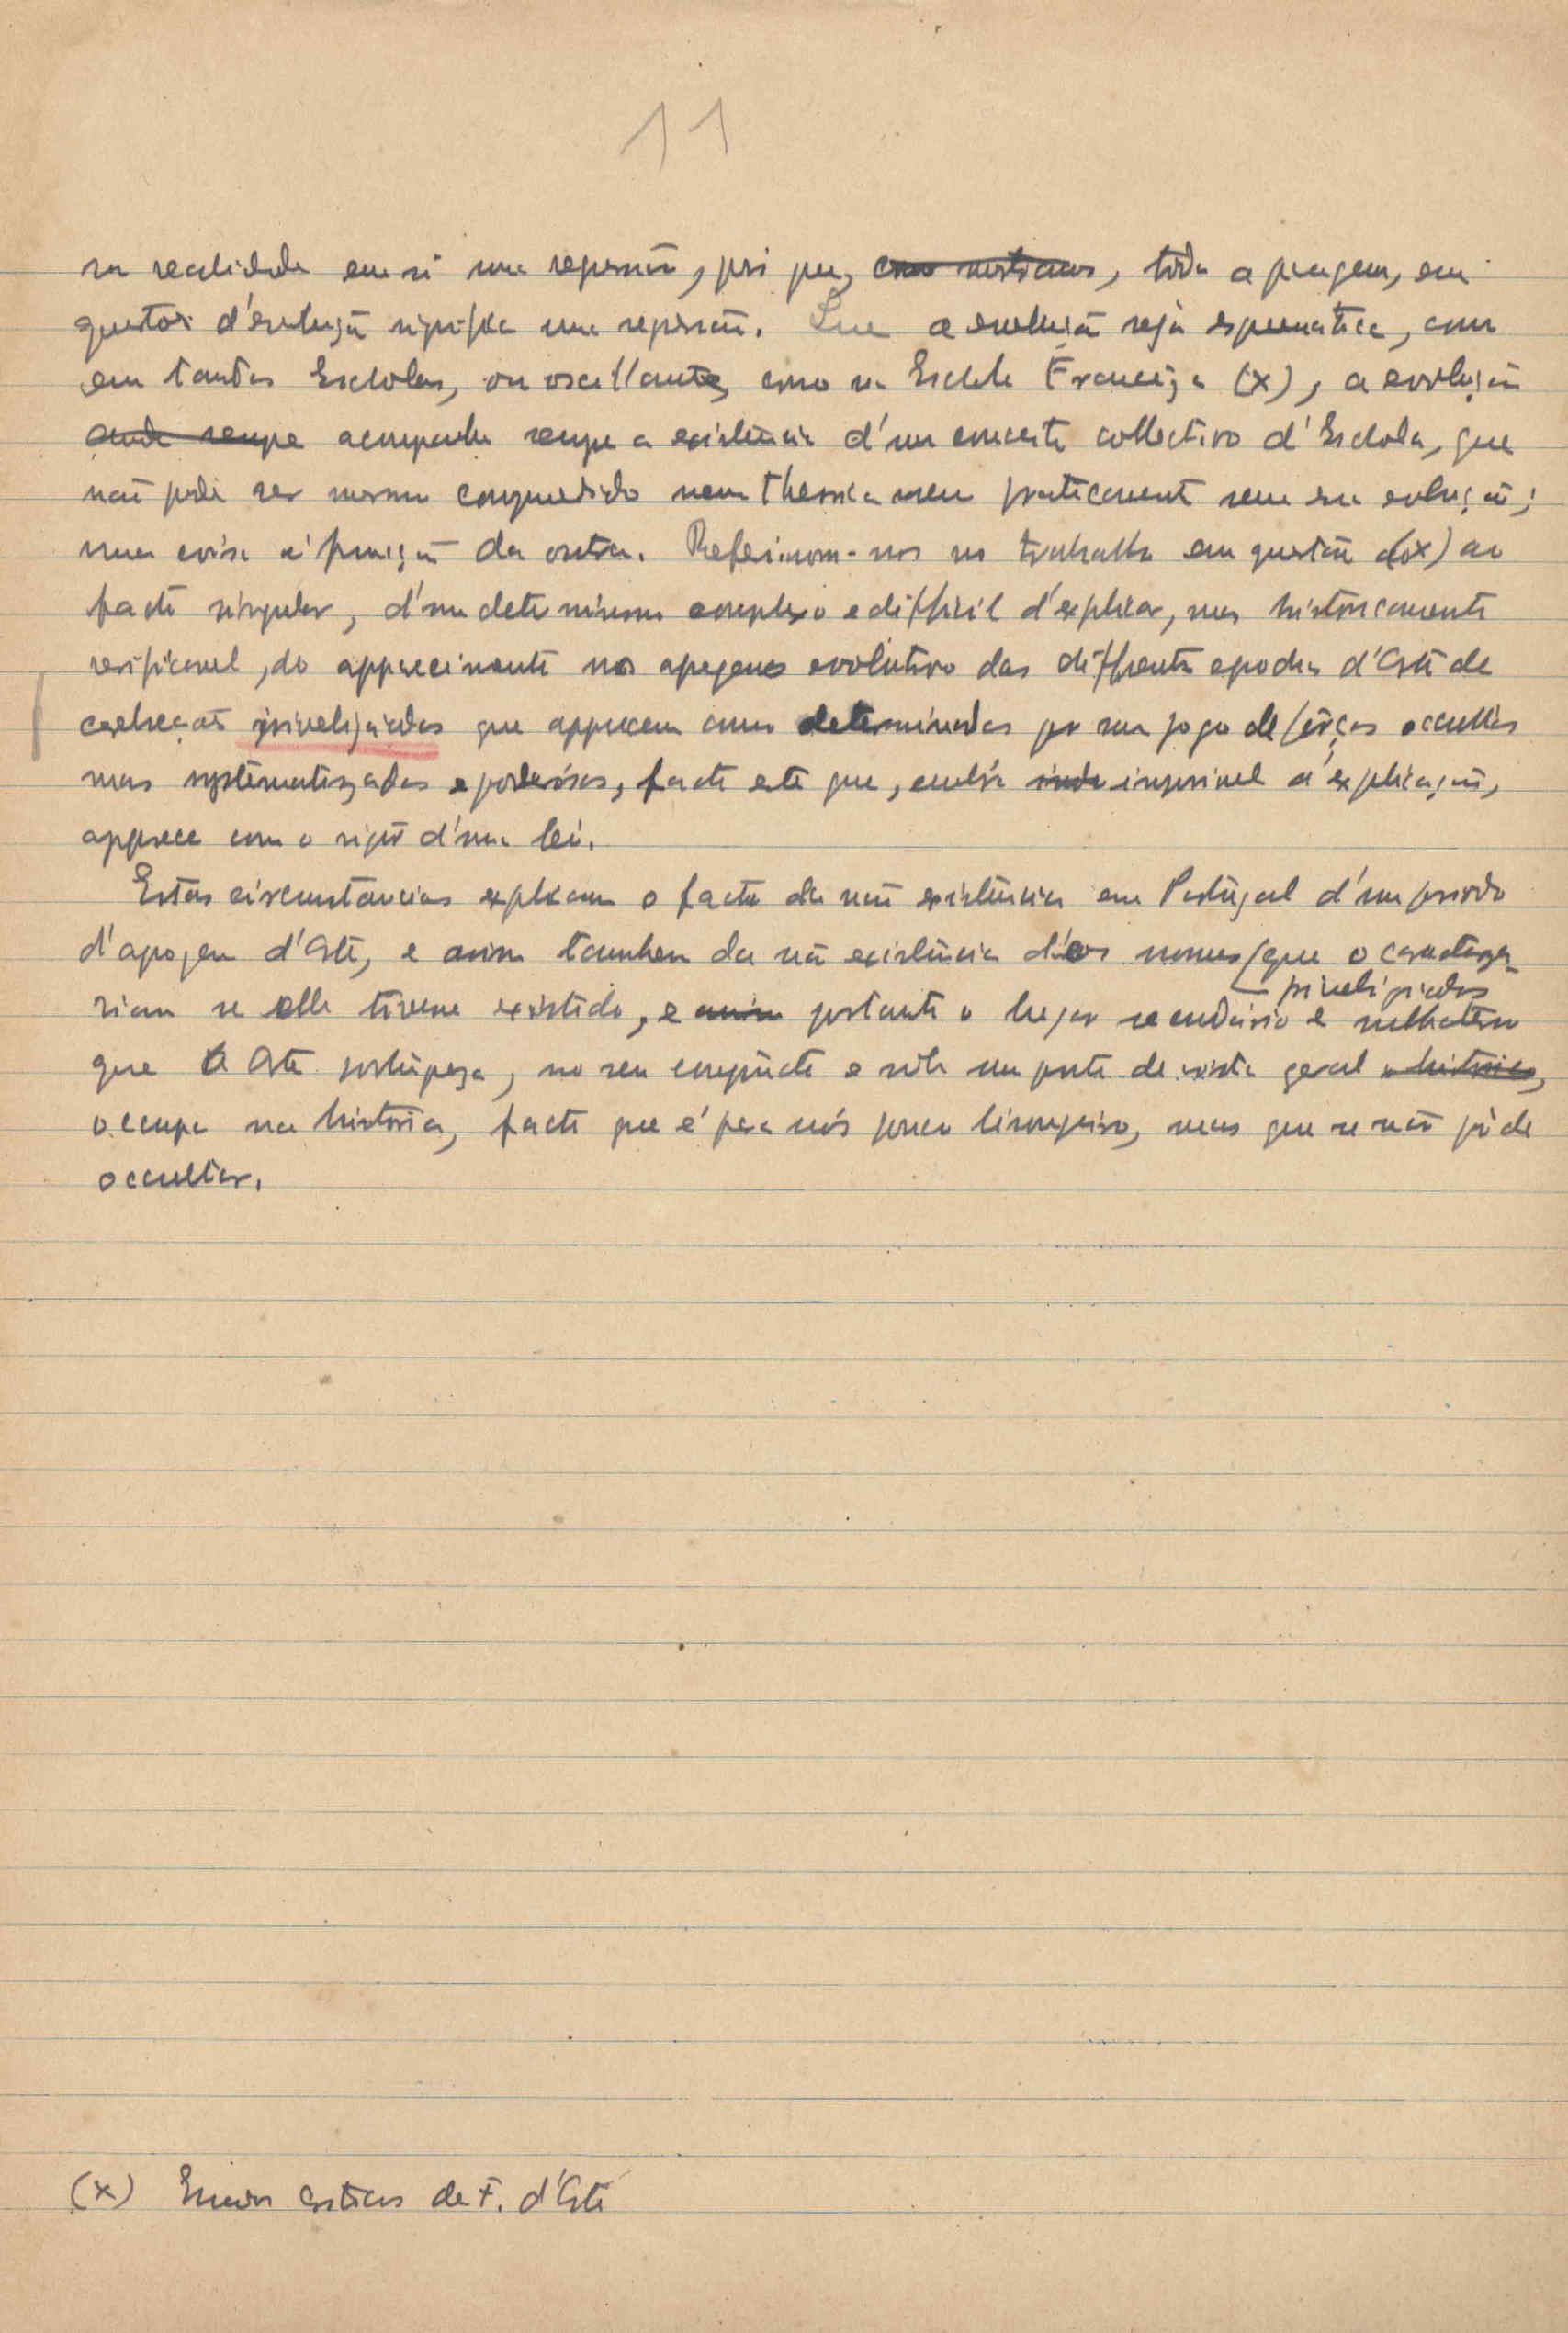 11
na realidade em si uma regressão, pois que, como mostramos, toda a paragem, em
questões d'evolução significa uma regressão. Que a evolução seja esquematica, como
em tantas Escholas, ou oscillante, como na Eschola Franceza (x), a evolução
anda sempre acompanha sempre a existencia d'um conceito collectivo d'Eschola, que
não pode ser mesmo comprehendido nem theorica nem praticamente sem sua evolução;
uma coisa é funcção da outra. Referimom-nos no trabalho em questão (x) ao
facto singular, d'um determinismo complexo e difficil d'explicar, mas historicamente
verificavel, do apparecimento nos apogeus evolutivo das differentes epochas d'Arte de
privilegiadas que apparecem como determinadas por um jogo de forças occultas
mas systematizadas e poderósas, facto este que, embóra impossivel d'explicação,
apparece com o rigôr d'uma lei.
Estas circumstancias explicam o facto da não existência em Portugal d'um periodo
d'apogeu d'Arte, e assim tambem da não existência d'os nomes que o caracteriza-
privilegiados
riam se elle tivesse existido, e assim portanto o lugar secundário e
que a Arte portugueza, no seu conjuncto e sob um ponto de vista geral e historico,
occupa na história, facto que é para nós pouco lisongeiro, mas que se não póde
occultar.
(x) Ensaios Criticos de F. d'Arte